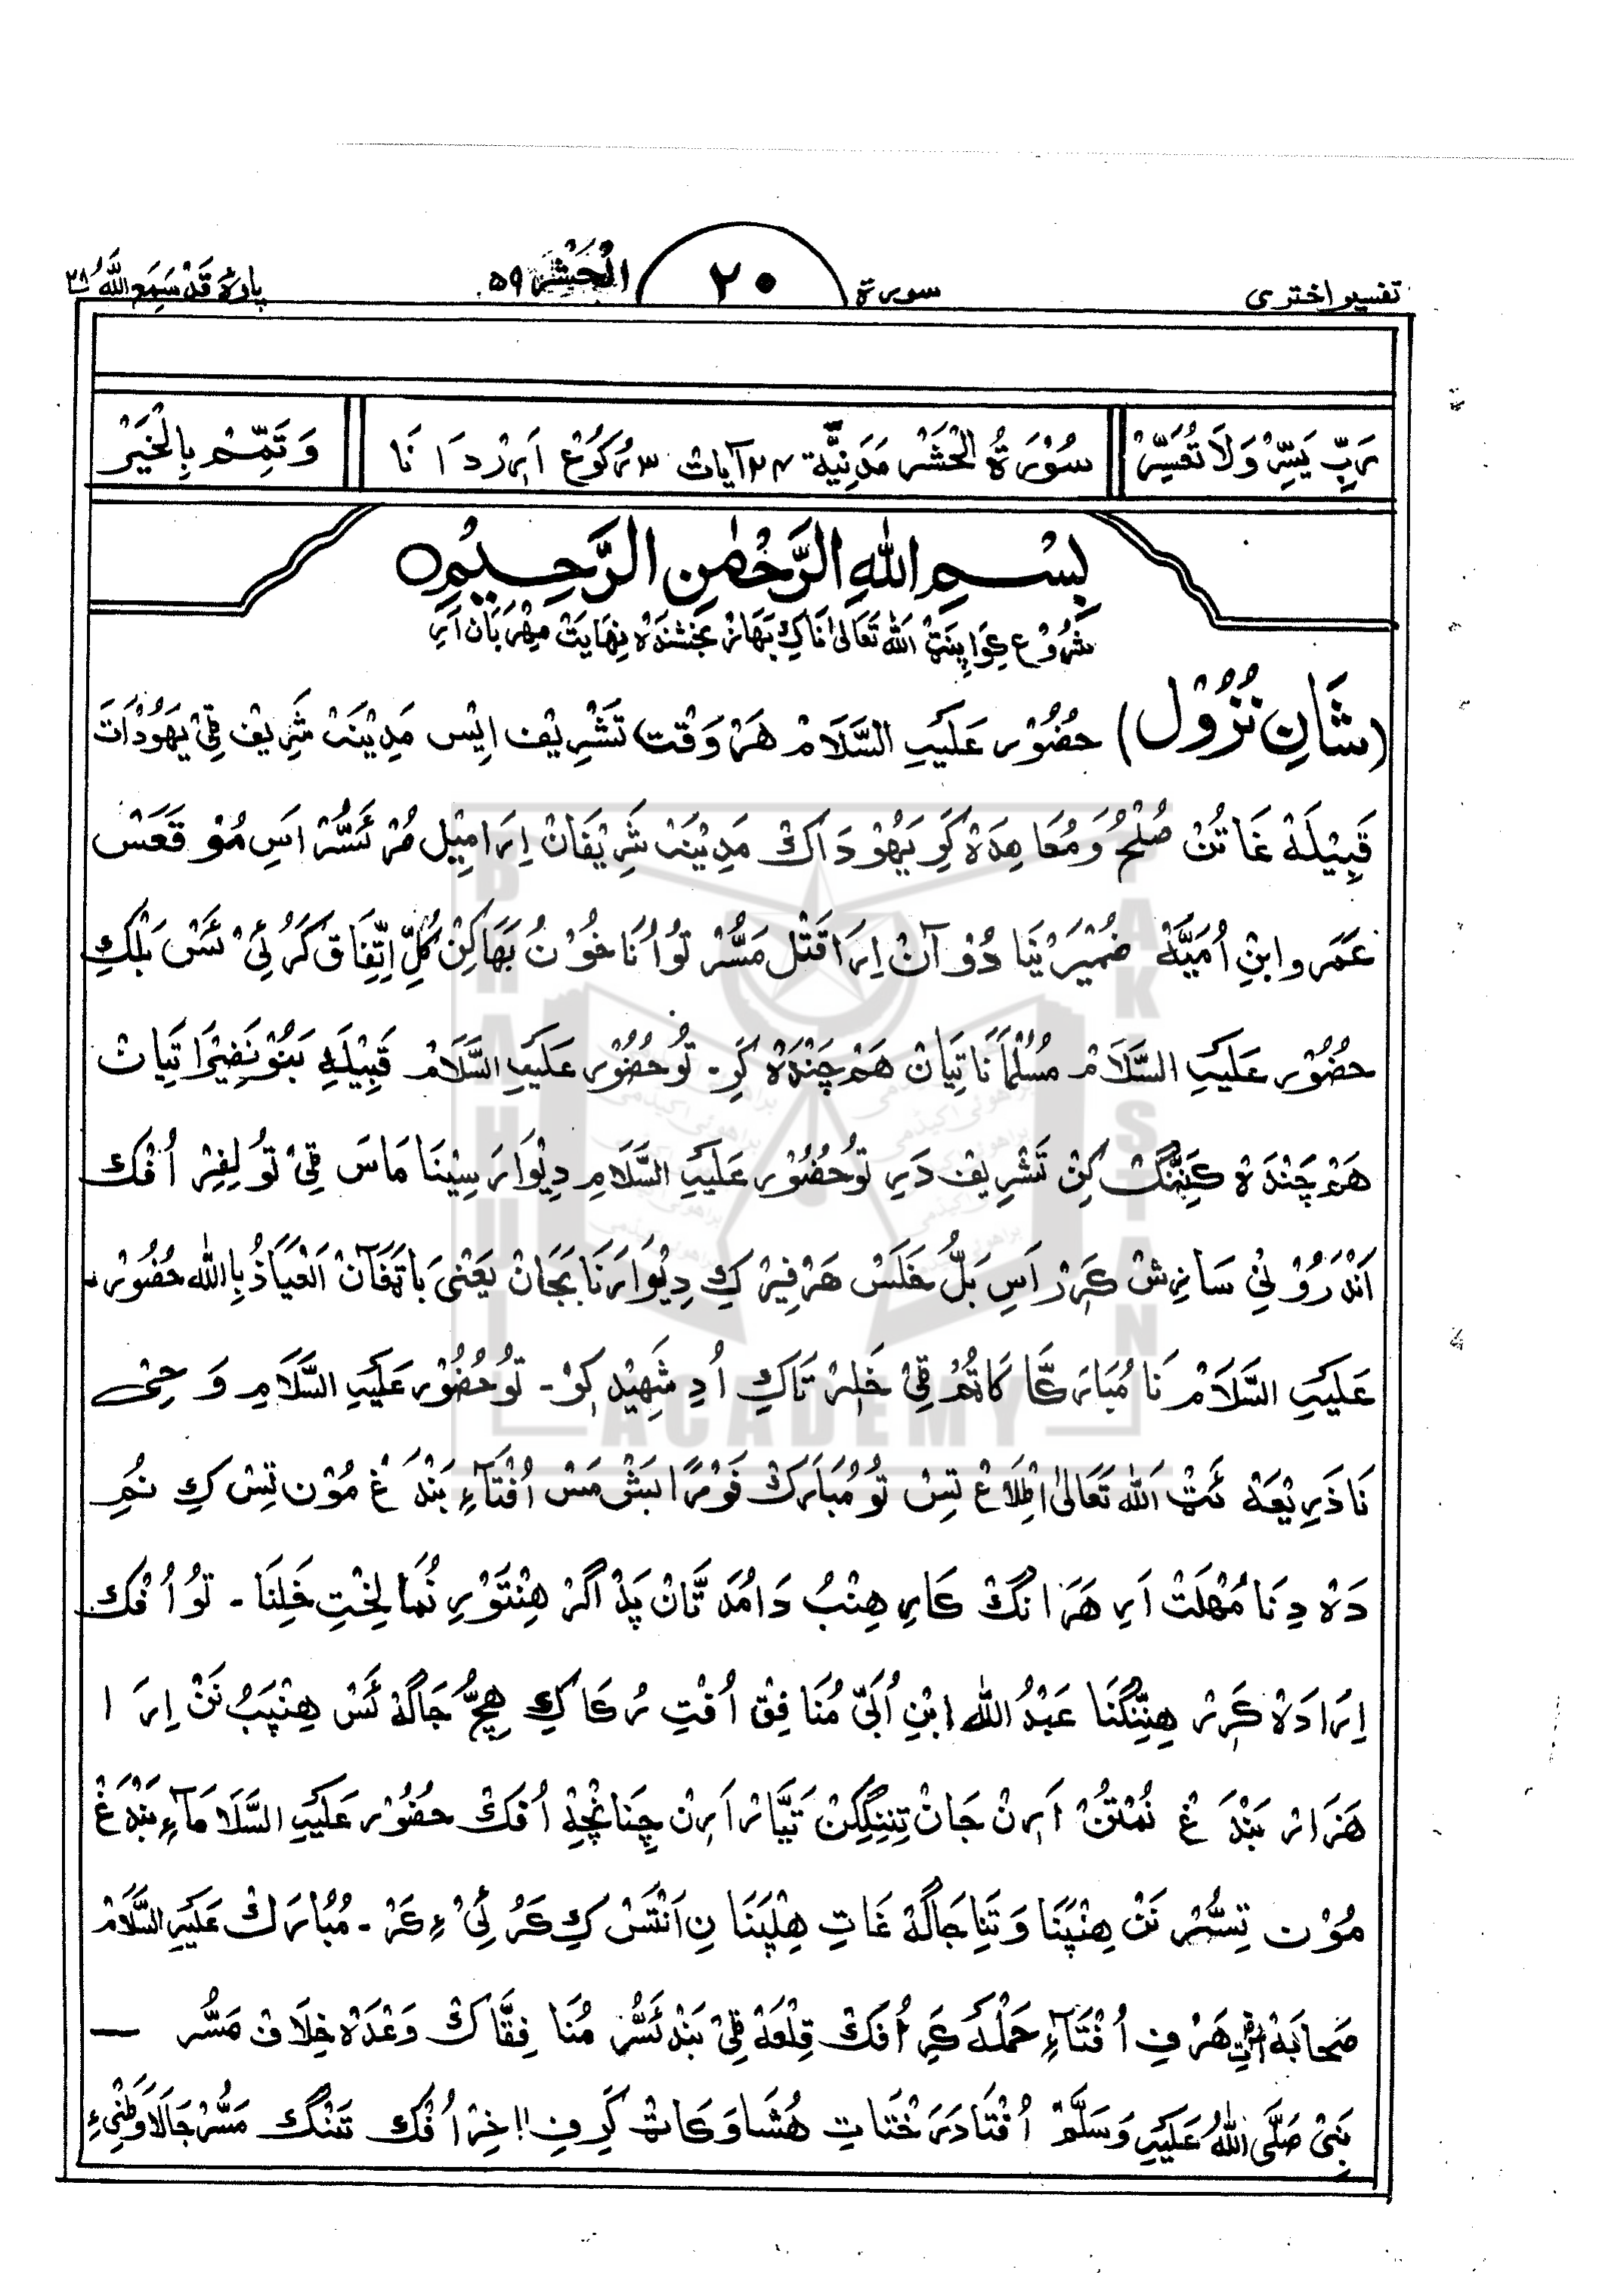 تفسیر اختری
سورة ۲۰ الْحَشْر ۵۹
پارہ قَدْ سَمِعَ اللّٰهُ ۲۸
رَبِّ يَسِّرْ وَلَا تُعَسِّرْ
سُوْرَةُ الْحَشْر مَدَنِيَّة ۲۴ آیَات ۳ رُکُوْع اَرِرْ دَا نَا
وَ تَمِّمْ بِالْخَيْرْ
بِسْمِ اللهِ الرَّحْمٰنِ الرَّحِيْمِ
شُرُوْع کِوَا پِنَٹْ اَللّٰه تَعَالیٰ نَاکِ بَهَازْ بَخْشَنْدَه نِهَايَتْ مِهْرَبَان اَرِ
(شَانِ نُزُوْل) حُضُوْر عَلَيْهِ السَّلَامْ هَرْ وَقْت تَشْرِيْف اِيْس مَدِيْنَہ شَرِيْف ٹِیْ يَهُوْدَاتَ
قَبِيْلَهْ غَاتُنْ صُلْح وَ مُعَاهِدَه کَرِ يَهُوْدَاکْ مَدِيْنَہ شَرِيْفَانْ اِرَا مِيْل مُرْ ئَسُّرْ اَسِ مُوْقَعَسْ
عَمَر و ابْنِ اُمَيَّهْ ضُمَيْرِيْنَا دُوْآنْ اِرَا قَتْل مَسُّرْ تَوْ اُنَا خُوْن بَهَا کِنْ کُلِّ اِتِّفَاق کَرُئِیْ ئَسْ بَلْکِ
حُضُوْر عَلَيْهِ السَّلَامْ مُسُلْمَانَاتِيَانْ هَمْ چَنْدَه کَرِ ۔ تَوْ حُضُوْر عَلَيْهِ السَّلَامْ قَبِيْلَهِ بَنُوْ نَضِيْرَا تِيَاٹْ
هَمْ چَنْدَهْ کَنِّنْگ کِنْ تَشْرِيْف دَرِ تَوْ حُضُوْر عَلَيْهِ السَّلَامِ دِيْوَارَ سِيْنَا مَاسَ ٹِیْ تَوْلِفِرْ اُفْکْ
اَنْدَرُوْنِیْ سَازِشْ کَرِرْ اَسِ بَلُّ خَلَسْ هَرْفِيْرْ کِ دِيْوَارَنَا بُجَانْ يَعْنِی بَاتَهَفَانْ اَلْعِيَاذُ بِاللّٰه حُضُوْر
عَلَيْهِ السَّلَامْ نَا مُبَارَکَّا کَاٹُمْ ٹِیْ خَلِرْ تَاکِ اُدِ شَهِيْد کِرْ ۔ تَوْ حُضُوْر عَلَيْهِ السَّلَامِ وَحِیْ
نَا ذَرِيْعَهْ ئَٹْ اَللّٰه تَعَالیٰ اِطْلَاعْ تِسْ تَوْ مُبَارَکْ فَوْرًا بَشْ مَسْ اُفْتَآءِ بَنْدَغْ مُوْن تِسْ کِ نُمِ
دَهْ دِنَا مُهْلَتْ اَرِ هَرَانْگْ کَارِ هِنْبُ دَا مُدَّ تَّانْ پَدْ اَگَرْ هِنْتَوْرِ نُمَا لِخْتِ خَلِنَا ۔ تَوْ اُفْکْ
اِرَادَهْ کَرِرْ هِنِّنْگَنَا عَبْدُ اللّٰه ابْنِ اُبَیّ مُنَافِقْ اُفْتِ رُکَاکِ هِچُّ جَاگَهْ ئَسْ هِنْپَبُ نَنْ اِرَا
هَزَارْ بَنْدَغْ نُمْتُنْ اَرِنْ جَانْ تِنِنْگِکِنْ تَيَّارْ اَرِنْ چِنَانْچِہْ اُفَکْ حُضُوْر عَلَيْهِ السَّلَامَآءِ بَنْدَغْ
مُوْن تِسُّرْ نَنْ هِنْپَنَا وَتَنِا جَاگَهْ غَاتِ هِلْپَنَا نِ اَنْتَسْ کِ کَرُئِیْ ءِ کَرْ ۔ مُبَارَکْ عَلَيْهِ السَّلَامْ
صَحَابَهْ اٰفِتِ هَرْفِ اُفْتَآءِ حَمْلَهْ کَرِ اُفَکْ قِلْعَهْ ٹِیْ بَنْد ئَسُّرْ مُنَافِقَّاکْ وَعْدَهْ خِلَافْ مَسُّر —
نَبِیْ صَلَّی اللّٰهُ عَلَيْهِ وَسَلَّمْ اُفْتَا دَرَخْتَاتِ هُشَا وَ کَاٹْ کَرِفِ !! اٰخِرْ اُفْکْ تَنْگْ مَسُّرْ جَلَاوَطْنِیْءِ